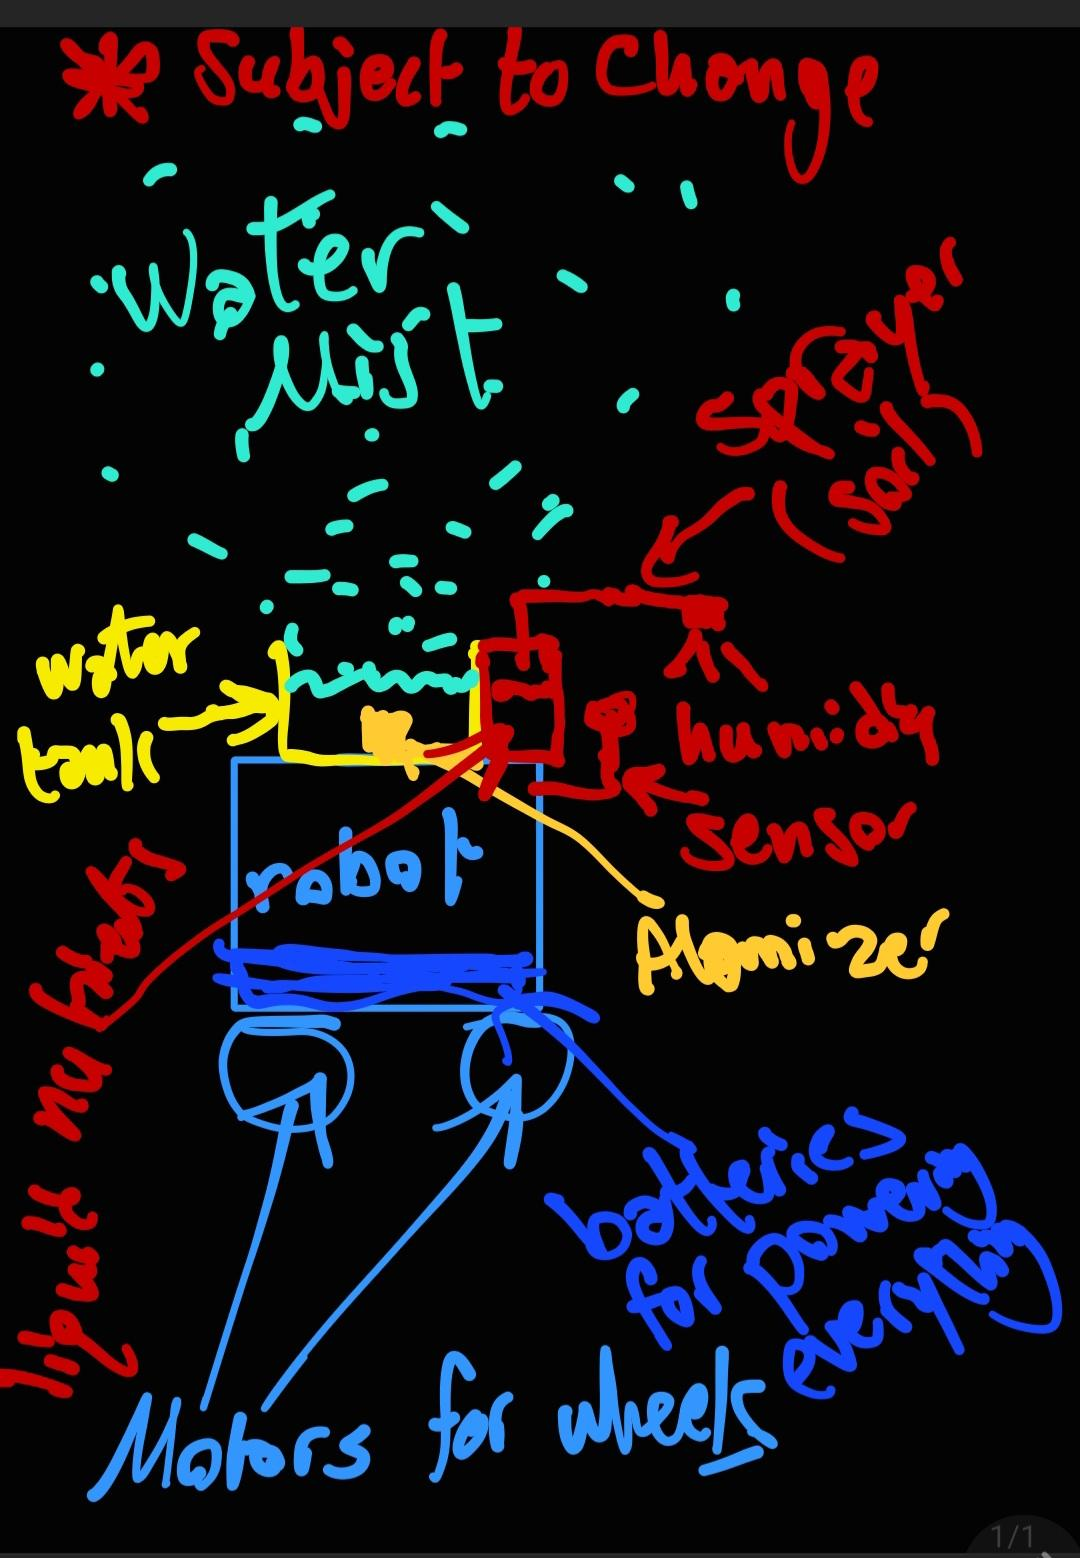 * Subject to Change
Water
Mist
Sprayer
(soil)
water
tank
humidity
sensor
robot
Atomizer
liquid nutrients
batteries
for powering
everything
Motors for wheels
1/1